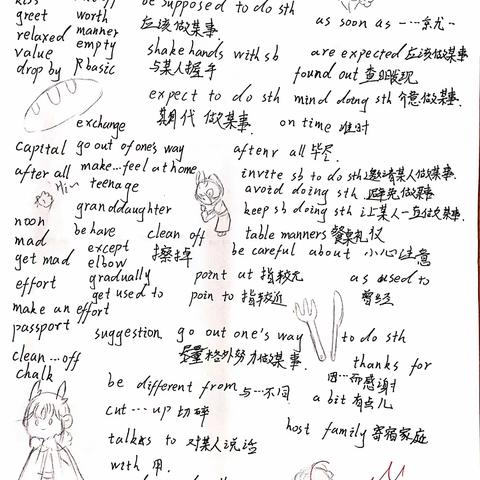 greet worth be supposed to do sth
应该做某事
as soon as 一…就…
relaxed manner
value empty shake hands with sb are expected 应该做某事
drop by basic 与某人握手 found out 查明发现
expect to do sth mind doing sth 介意做某事.
期代 做某事.
exchange on time 准时
capital go out of one's way after all 毕尽
after all make…feel at home invite sb to do sth 邀请某人做某事.
Hi~ teenage avoid doing sth 避免做某事
granddaughter keep sb doing sth 让某人一直做某事.
noon be have clean off table manners 餐桌礼仪
mad except 擦掉 be careful about 小心注意
get mad elbow
effort gradually point at 指较近 as used to
get used to poin to 指较近 曾经
make an effort
passport suggestion. go out one's way to do sth
格外努力做某事.
clean…off thanks for
chalk 因…而感谢
be different from 与…不同
a bit 有点儿
cut…up 切碎
host family 寄宿家庭
talkks to 对某人说话
with 用.